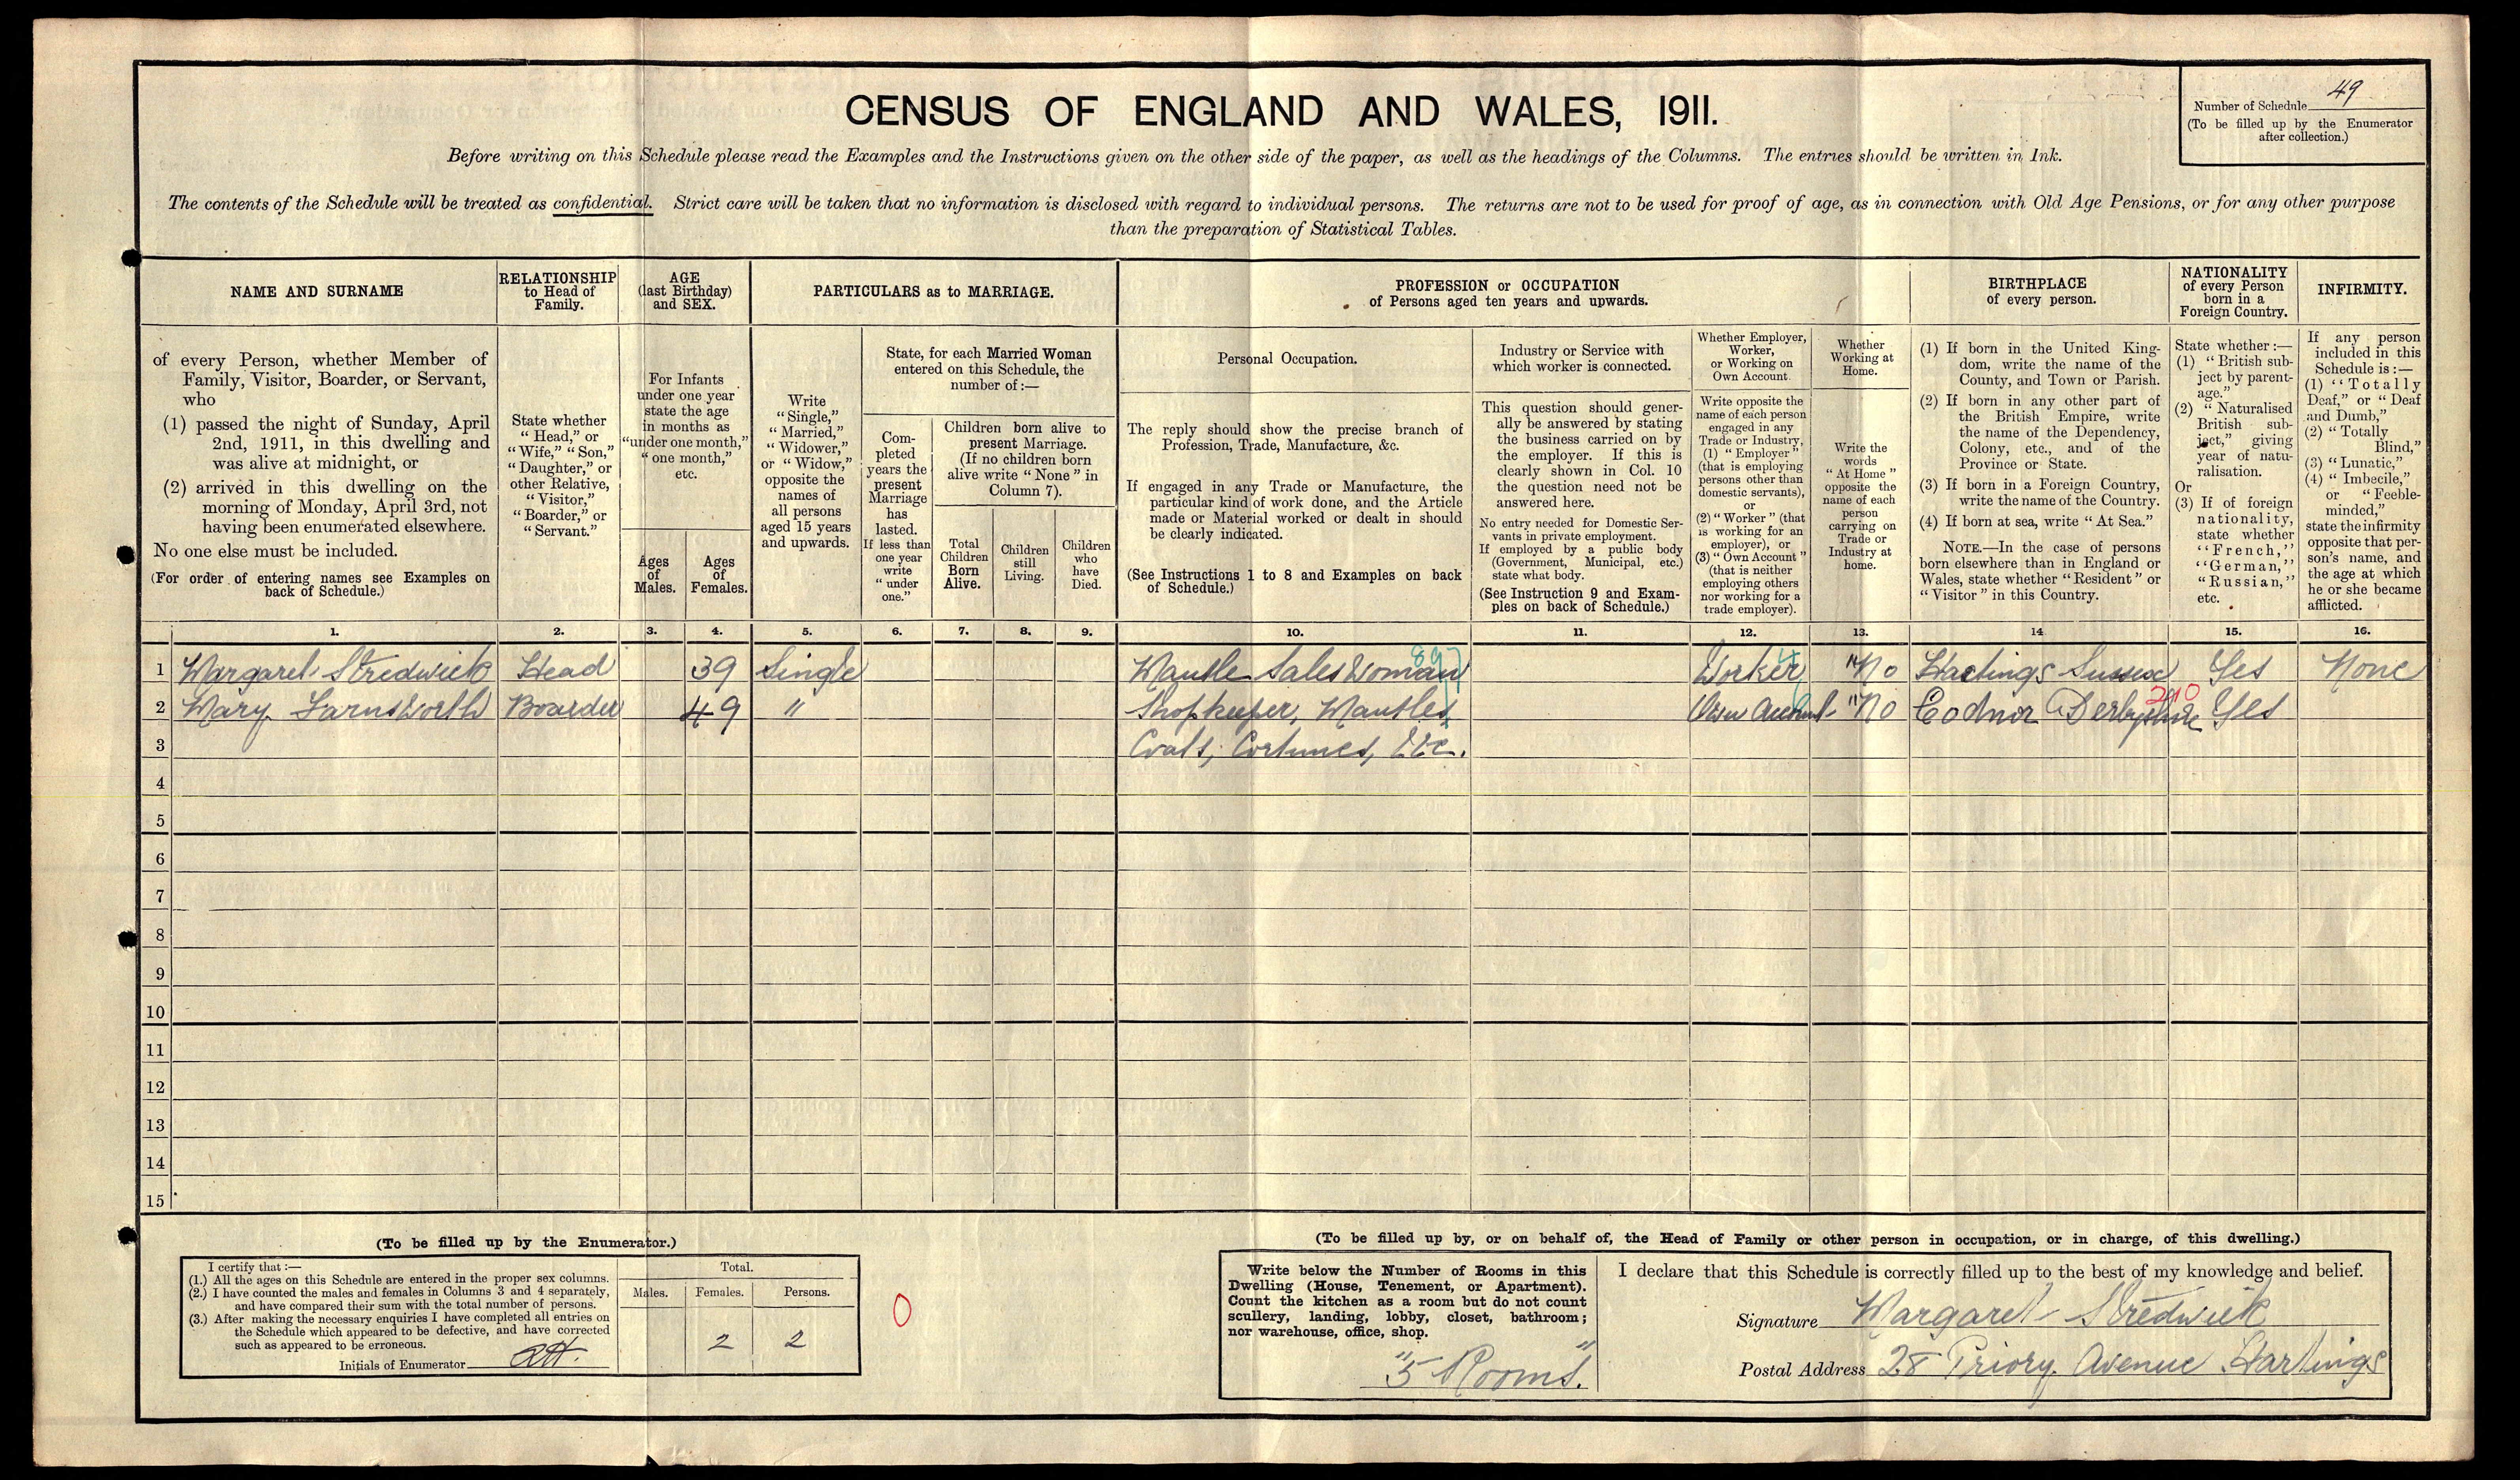 CENSUS OF ENGLAND AND WALES, 1911.
Number of Schedule 49
(To be filled up by the Enumerator
after collection.)
Before writing on this Schedule please read the Examples and the Instructions given on the other side of the paper, as well as the headings of the Columns. The entries should be written in Ink.
The contents of the Schedule will be treated as confidential. Strict care will be taken that no information is disclosed with regard to individual persons. The returns are not to be used for proof of age, as in connection with Old Age Pensions, or for any other purpose
than the preparation of Statistical Tables.
NAME AND SURNAME
of every Person, whether Member of
Family, Visitor, Boarder, or Servant,
who
(1) passed the night of Sunday, April
2nd, 1911, in this dwelling and
was alive at midnight, or
(2) arrived in this dwelling on the
morning of Monday, April 3rd, not
having been enumerated elsewhere.
No one else must be included.
(For order of entering names see Examples on
back of Schedule.)
RELATIONSHIP
to Head of
Family.
State whether
"Head," or
"Wife," "Son,"
"Daughter," or
other Relative,
"Visitor,"
"Boarder," or
"Servant."
AGE
(last Birthday)
and SEX.
For Infants
under one year
state the age
in months as
"under one month,"
"one month,"
etc.
Ages
of
Males.
Ages
of
Females.
PARTICULARS as to MARRIAGE.
Write
"Single,"
"Married,"
"Widower,"
or "Widow,"
opposite the
names of
all persons
aged 15 years
and upwards.
State, for each Married Woman
entered on this Schedule, the
number of:—
Com-
pleted
years the
present
Marriage
has
lasted.
If less than
one year
write
"under
one."
Children born alive to
present Marriage.
(If no children born
alive write "None" in
Column 7).
Total
Children
Born
Alive.
Children
still
Living.
Children
who
have
Died.
PROFESSION or OCCUPATION
of Persons aged ten years and upwards.
Personal Occupation.
The reply should show the precise branch of
Profession, Trade, Manufacture, &c.
If engaged in any Trade or Manufacture, the
particular kind of work done, and the Article
made or Material worked or dealt in should
be clearly indicated.
(See Instructions 1 to 8 and Examples on back
of Schedule.)
Industry or Service with
which worker is connected.
This question should gener-
ally be answered by stating
the business carried on by
the employer. If this is
clearly shown in Col. 10
the question need not be
answered here.
No entry needed for Domestic Ser-
vants in private employment.
If employed by a public body
(Government, Municipal, etc.)
state what body.
(See Instruction 9 and Exam-
ples on back of Schedule.)
Whether Employer,
Worker,
or Working on
Own Account.
Write opposite the
name of each person
engaged in any
Trade or Industry,
(1) "Employer"
(that is employing
persons other than
domestic servants),
or
(2) "Worker" (that
is working for an
employer), or
(3) "Own Account"
(that is neither
employing others
nor working for a
trade employer).
Whether
Working at
Home.
Write the
words
"At Home"
opposite the
name of each
person
carrying on
Trade or
Industry at
home.
BIRTHPLACE
of every person.
(1) If born in the United King-
dom, write the name of the
County, and Town or Parish.
(2) If born in any other part of
the British Empire, write
the name of the Dependency,
Colony, etc., and of the
Province or State.
(3) If born in a Foreign Country,
write the name of the Country.
(4) If born at sea, write "At Sea."
NOTE.—In the case of persons
born elsewhere than in England or
Wales, state whether "Resident" or
"Visitor" in this Country.
NATIONALITY
of every Person
born in a
Foreign Country.
State whether:—
(1) "British sub-
ject by parent-
age."
(2) "Naturalised
British sub-
ject," giving
year of natu-
ralisation.
Or
(3) If of foreign
nationality,
state whether
"French,"
"German,"
"Russian,"
etc.
INFIRMITY.
If any person
included in this
Schedule is:—
(1) "Totally
Deaf," or "Deaf
and Dumb,"
(2) "Totally
Blind,"
(3) "Lunatic,"
(4) "Imbecile,"
or "Feeble-
minded,"
state the infirmity
opposite that per-
son's name, and
the age at which
he or she became
afflicted.
1. 2. 3. 4. 5. 6. 7. 8. 9. 10. 11. 12. 13. 14 15. 16.
1 Margaret Stredwick Head 39 Single Mantle Saleswoman 897 Worker 4 "No Hastings Sussex Yes None
2 Mary Farnsworth Boarder 49 " Shopkeeper, Mantles, Own Account "No Codnor Derbyshire 240 Yes
3 Coats, Costumes, Etc.
4
5
6
7
8
9
10
11
12
13
14
15
(To be filled up by the Enumerator.)
I certify that:—
(1.) All the ages on this Schedule are entered in the proper sex columns.
(2.) I have counted the males and females in Columns 3 and 4 separately,
and have compared their sum with the total number of persons.
(3.) After making the necessary enquiries I have completed all entries on
the Schedule which appeared to be defective, and have corrected
such as appeared to be erroneous.
Initials of Enumerator
Total.
Males. Females. Persons.
2 2
0
(To be filled up by, or on behalf of, the Head of Family or other person in occupation, or in charge, of this dwelling.)
Write below the Number of Rooms in this
Dwelling (House, Tenement, or Apartment).
Count the kitchen as a room but do not count
scullery, landing, lobby, closet, bathroom;
nor warehouse, office, shop.
"5 Rooms."
I declare that this Schedule is correctly filled up to the best of my knowledge and belief.
Signature Margaret Stredwick
Postal Address 28 Priory Avenue Hastings